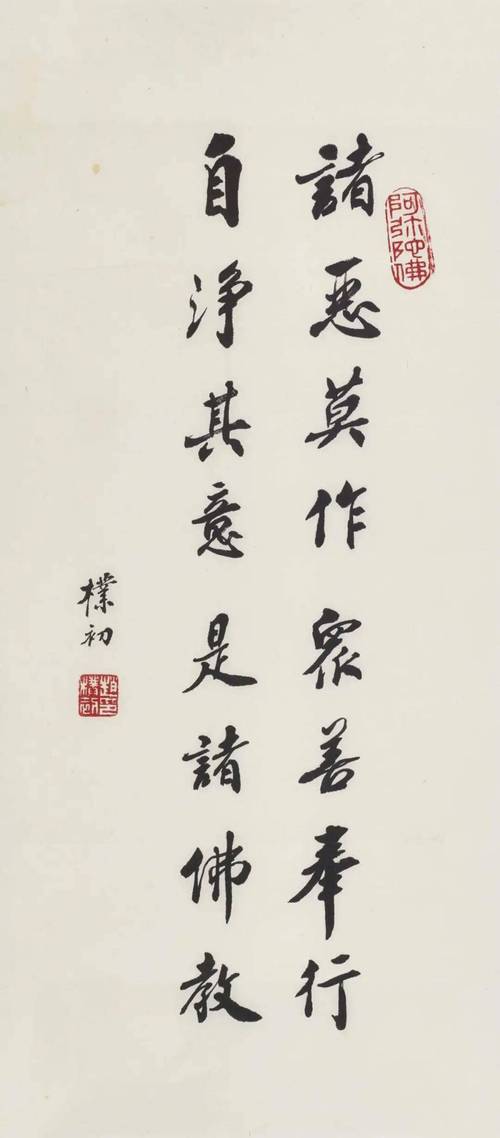 阿弥陀佛
諸惡莫作眾善奉行
自淨其意是諸佛教
樸初
趙樸初印